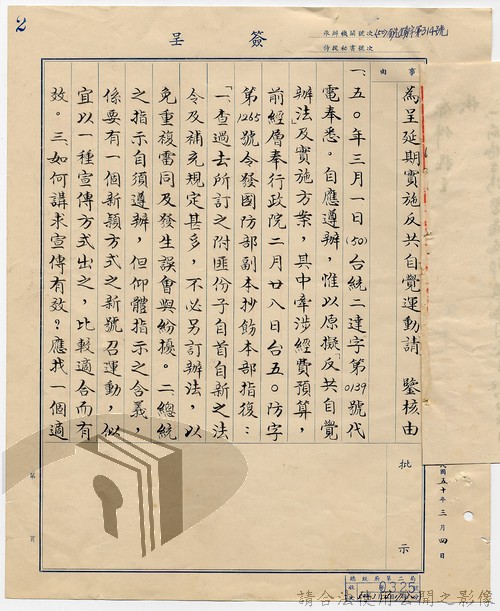 2
簽呈
承辦機關號次(50)銳瞻字第314號
侍從秘書號次
事由
為呈延期實施反共自覺運動請 鑒核由
一、五○年三月一日(50)台統二達字第0139號代
電奉悉。自應遵辦，惟以原擬「反共自覺
辦法」及實施方案，其中牽涉經費預算，
前經層奉行政院二月廿八日台五○防字
第1265號令發國防部副本抄飭本部指復：
「一、查過去所訂之附匪份子自首自新之法
令及補充規定甚多，不必另訂辦法，以
免重複雷同及發生誤會與紛擾。二、總統
之指示自須遵辦，但仰體指示之含義，
係要有一個新穎方式之新號召運動，似
宜以一種宣傳方式出之，比較適合而有
效。三、如何講求宣傳有效？應找一個適
批示
民國五十年三月四日
第 頁
總統府第二局
0325
請合法使用公開之影像